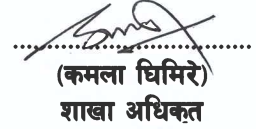 (कमला घिमिरे)
शाखा अधिकृत